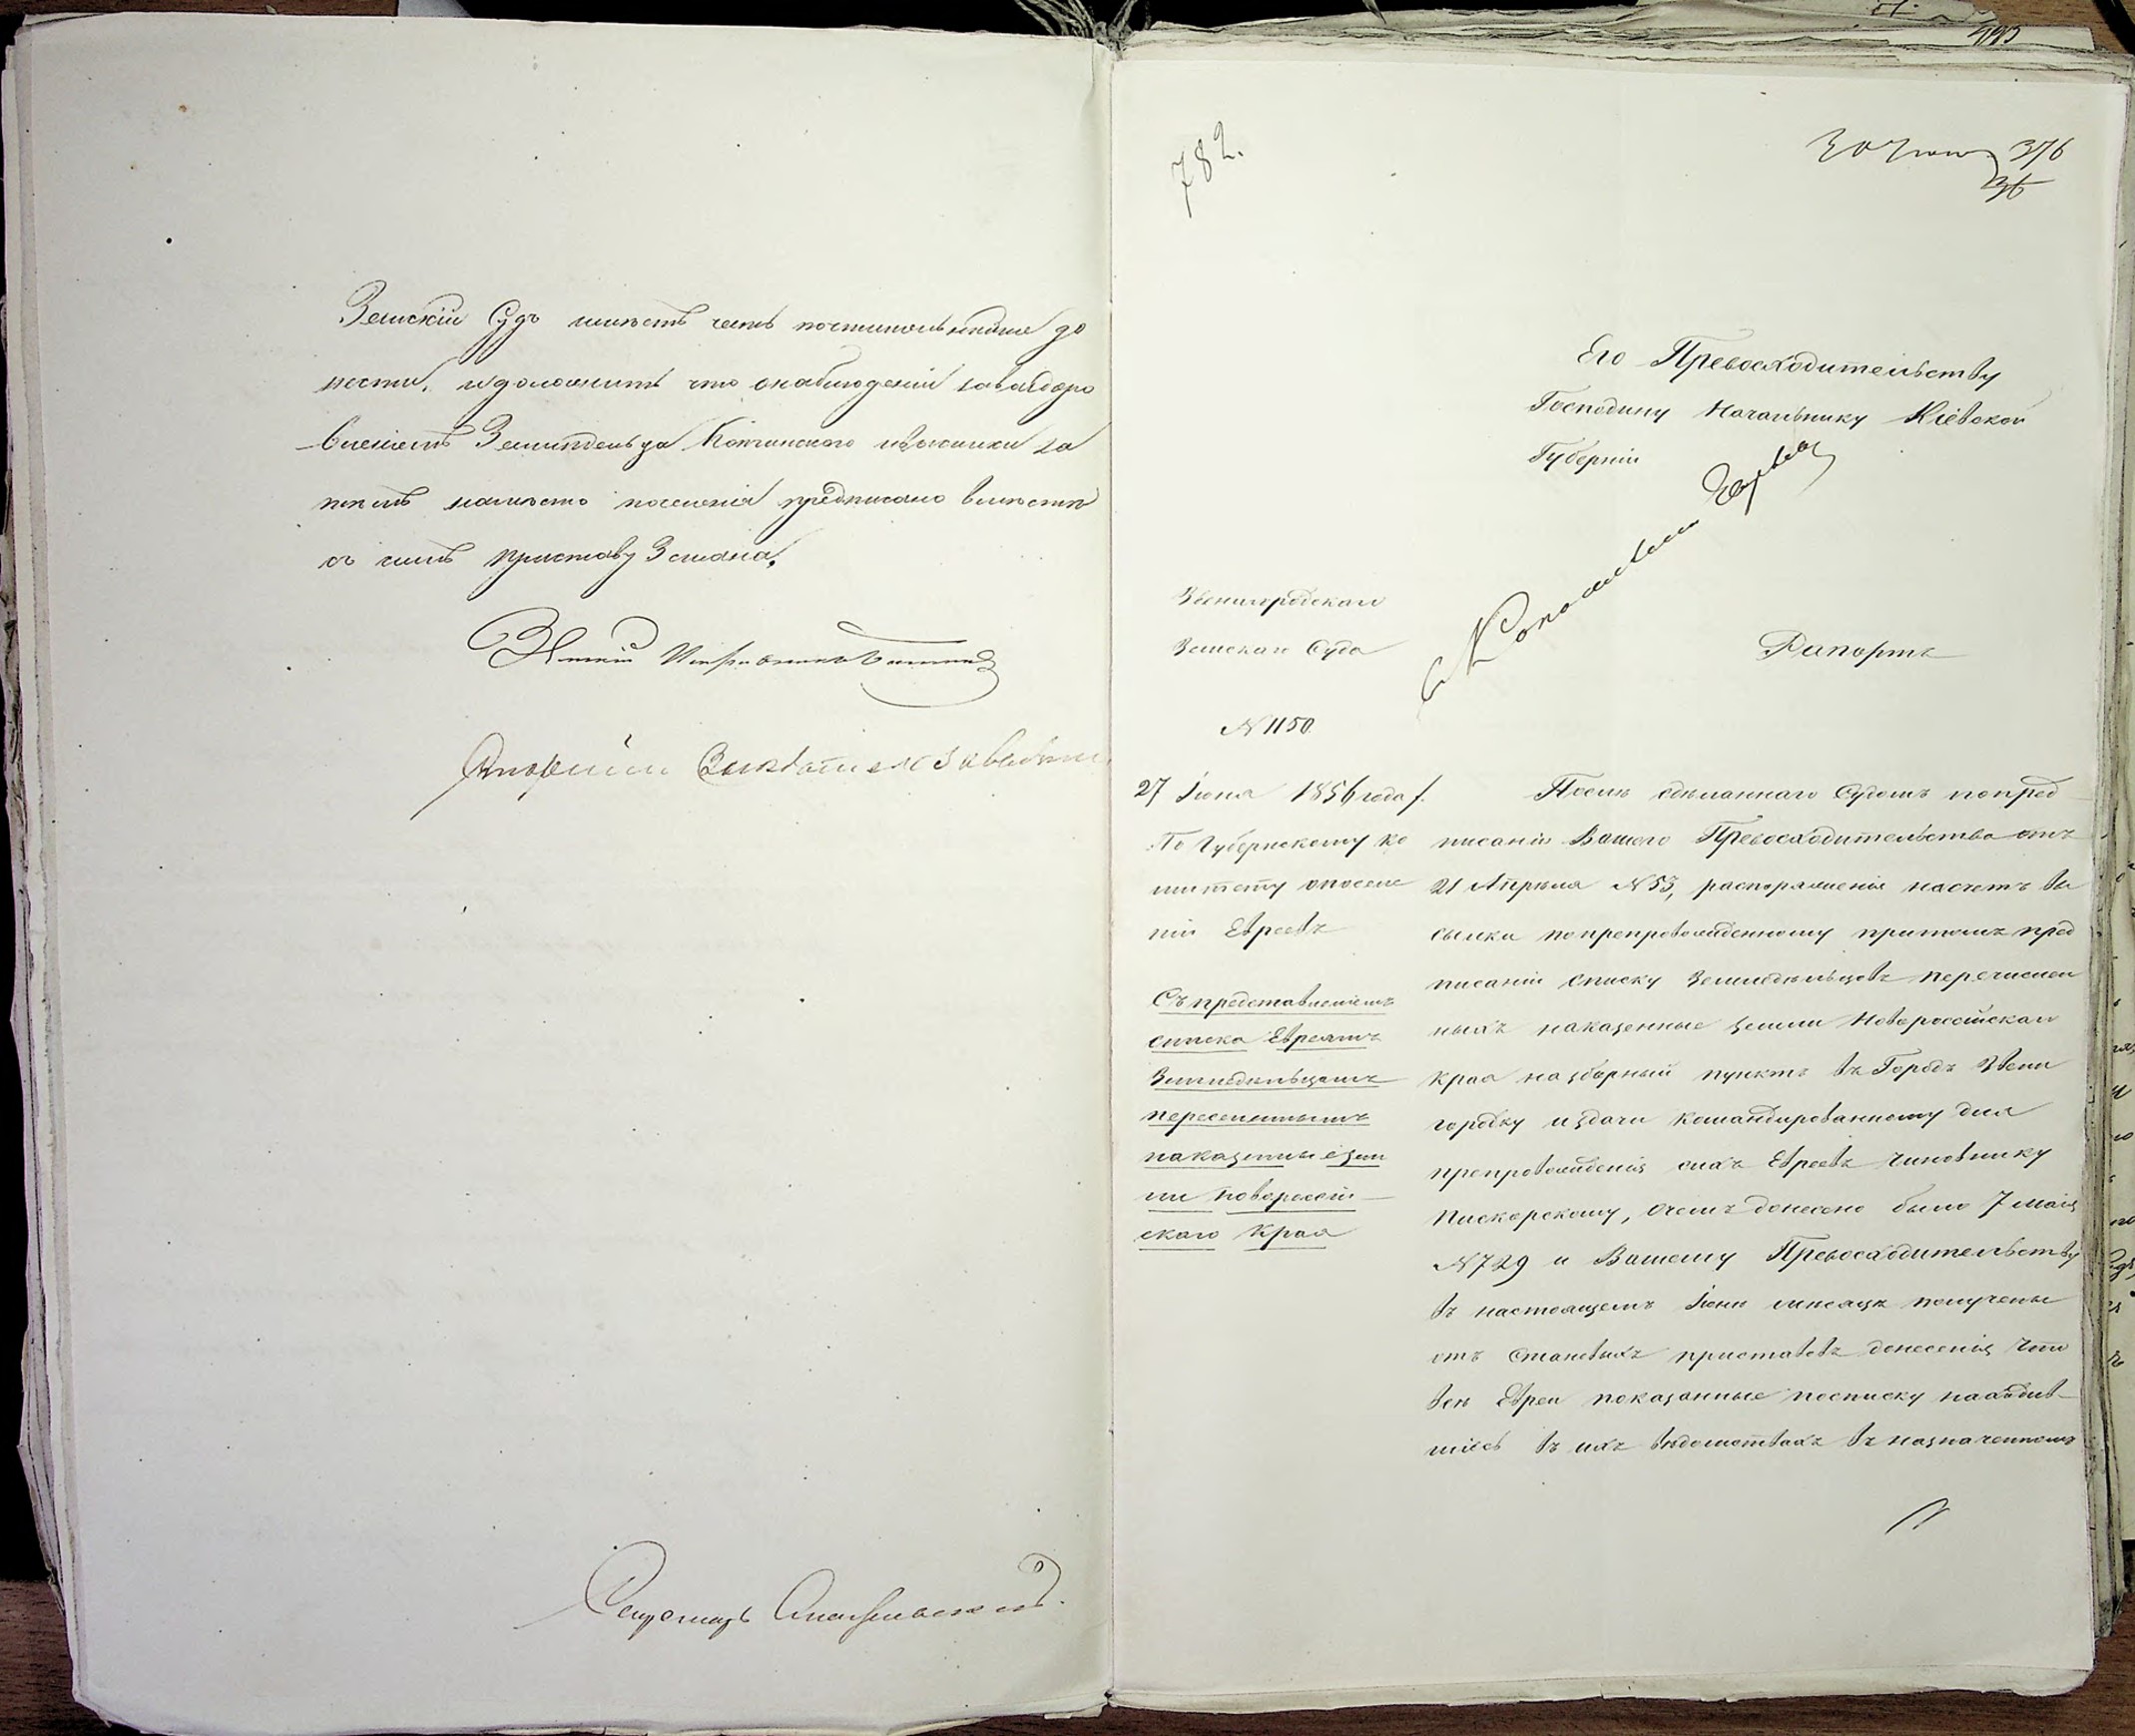 Земскій Судъ имѣетъ честь почтительнѣйше до
нести, и доложить что о наблюденіи за выздоро
вленіемъ Земледѣльца и высылки за
тѣмъ на мѣсто поселенія предписано вмѣстѣ
съ симъ приставу 3 стана.
Земскій Исправникъ
Секретарь
782.
30 Іюн 376
36
Его Превосходительству
Господину Начальнику Кіевской
Губерніи
Звенигородскаго
Земскаго Суда
Рапортъ
N 1150
27 Іюня 1856 года
По Губернскому ко
митету о поселе
ніи Евреевъ
Съ представленіемъ
списка Евреямъ
Земледѣльцамъ
переселеннымъ
на казенные зем
ли Новороссій–
скаго Края
Послѣ сдѣланнаго Судомъ по пред
писанію Вашего Превосходительства отъ
21 Апрѣля N 53, распоряженія насчетъ вы
сылки по препровожденному при томъ пред
писаніи списку Земледѣльцевъ перечислен
ныхъ на казенные земли Новороссійскаго
края на сборный пунктъ въ Городъ Звени
городку и здачи командированному для
препровожденія сихъ Евреевъ чиновнику
Пискорскому, о чемъ донесено было 7 мая
N 729 и Вашему Превосходительству
въ настоящемъ Іюнѣ мѣсяцѣ получены
отъ Становыхъ приставовъ донесенія что
всѣ Евреи показанные по списку находив–
шіесь въ ихъ вѣдомствахъ въ назначенномъ